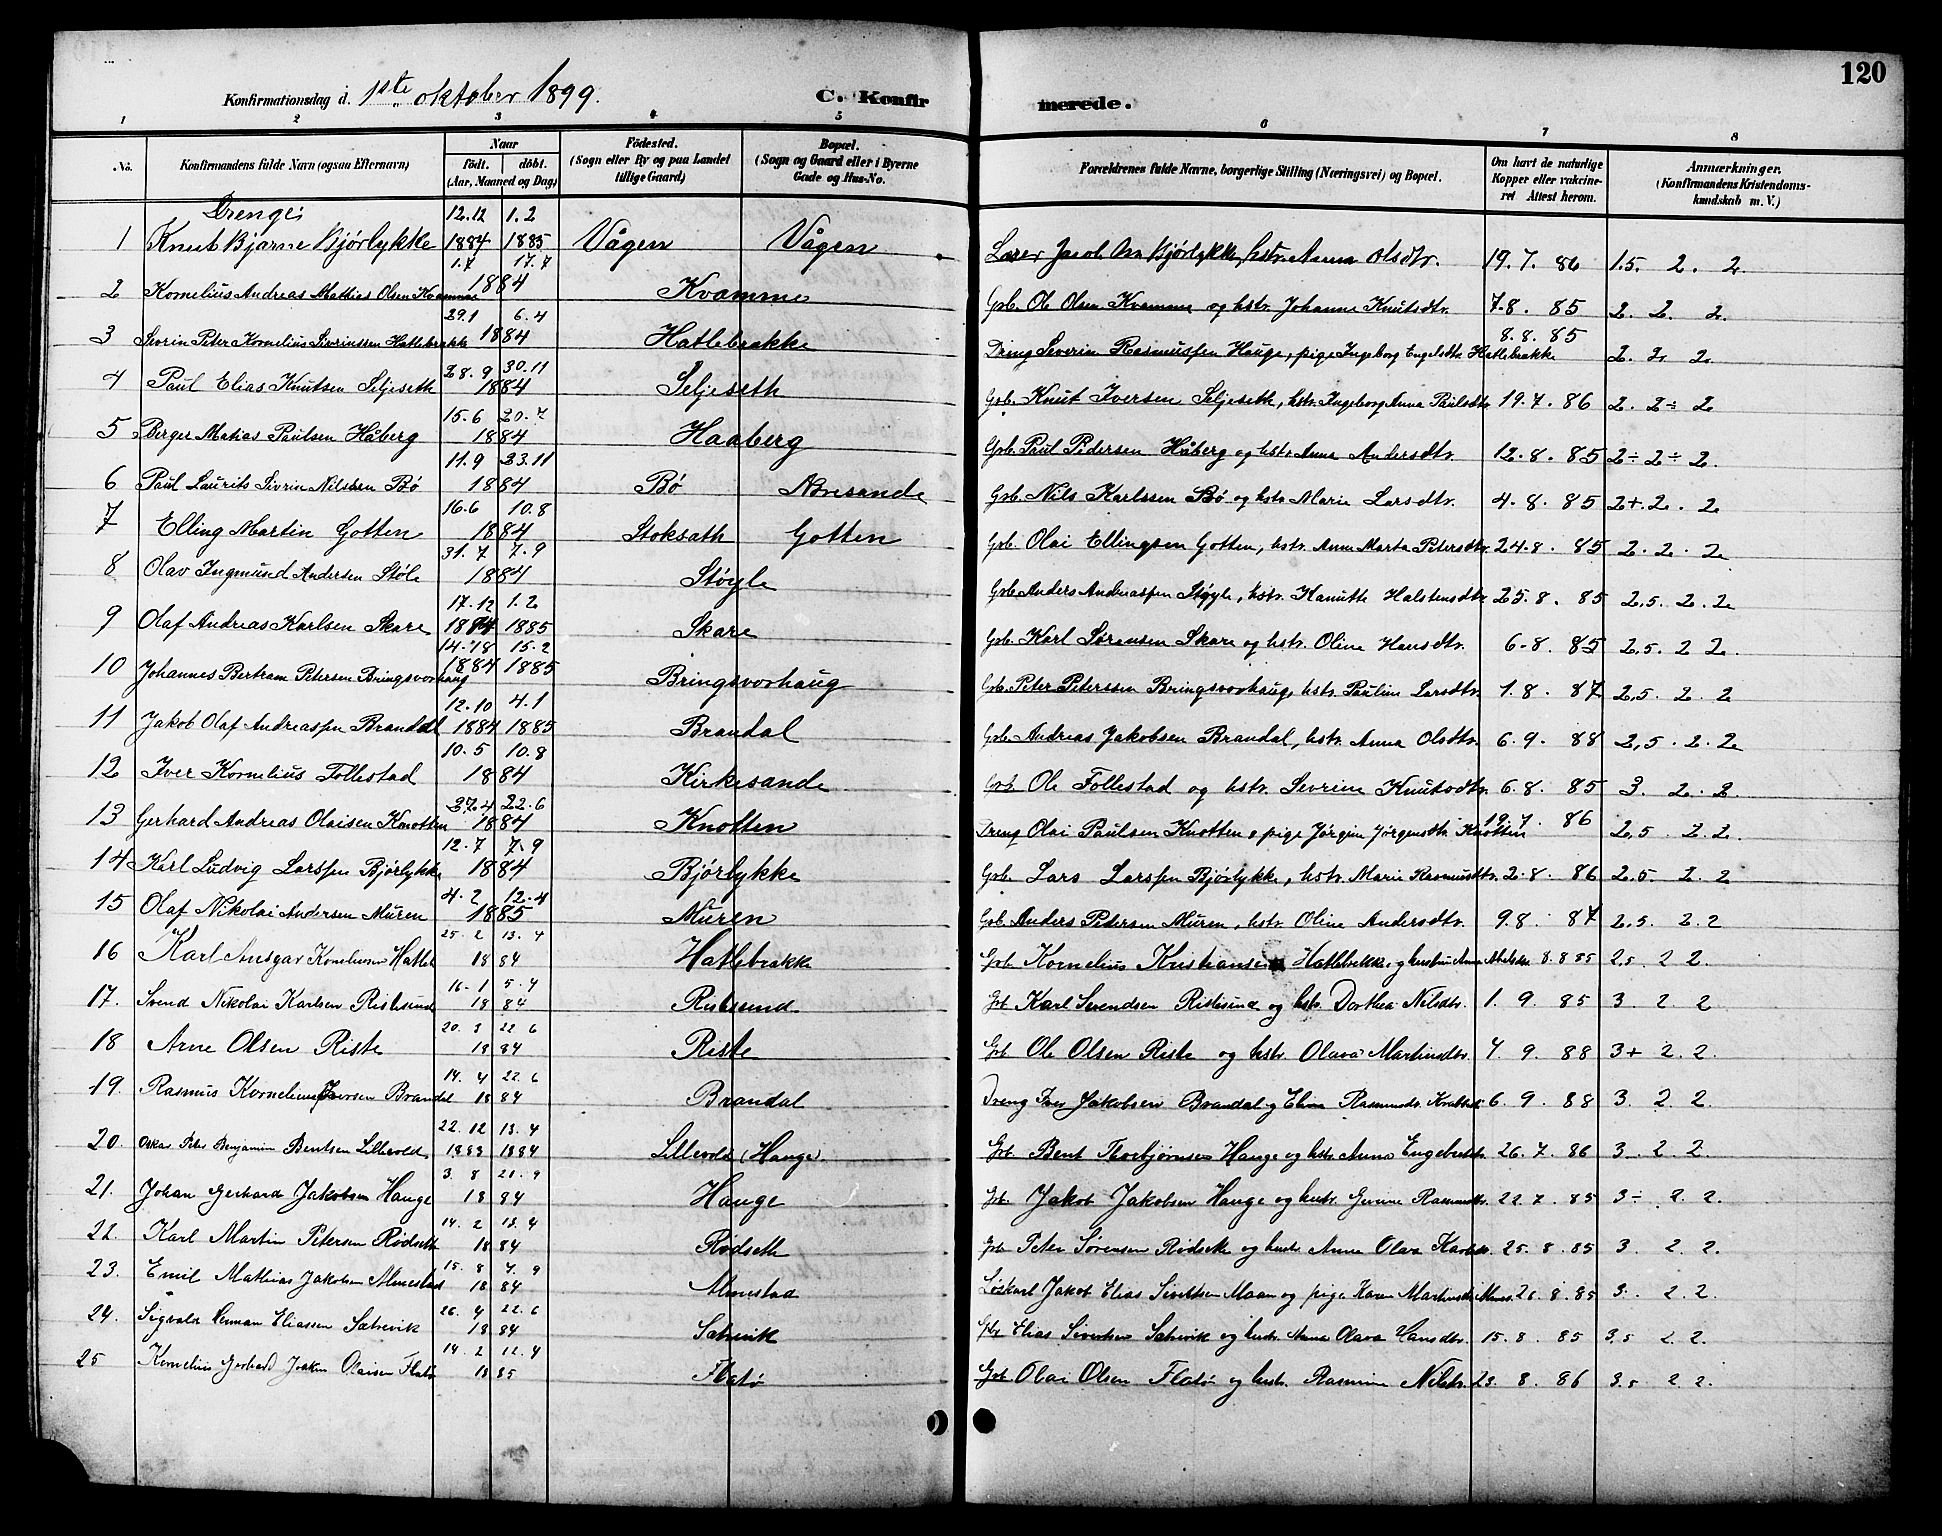 120
Konfirmationsdag d. 1ste oktober 1899.
C. Konfirmerede.
1 2 3 4 5 6 7 8
No. Konfirmandens fulde Navn (ogsaa Efternavn) Naar födt. döbt. (Aar, Maaned og Dag) Födested. (Sogn eller By og paa Landet tillige Gaard) Bopæl. (Sogn og Gaard eller i Byerne Gade og Hus-No. Forældrenes fulde Navne, borgerlige Stilling (Næringsvei) og Bopæl. Om havt de naturlige Kopper eller vakcineret Attest herom. Anmærkninger. (Konfirmandens Kristendomskundskab m. V.)
Drenge:
1 Knut Bjarne Bjørlykke 12.12 1884 1.2 1885 Vågen Vågen Lærer Jacob Bjørlykke, hstr. Anna Olsdtr. 19. 7. 86 1.5. 2. 2.
2 Kornelius Andreas Mathias Olsen Kvamme 1.7 17.7 1884 Kvamme Grb. Ole Olsen Kvamme og hstr. Johanne Knutsdtr. 7.8. 85 2. 2. 2.
3 Sevrin Peter Kornelius Sivrinssen Hatlebrakke 29.1 6.4 1884 Hatlebrakke Dreng Severin Rasmussen Hauge, pige Ingeborg Engelsdtr. Hatlebrakke 8.8. 85 2. 2. 2
4 Paul Elias Knutsen Seljeseth 28.9 30.11 1884 Seljeseth Grb. Knut Iversen Seljeseth, hstr. Ingeborg Anna Paulsdtr. 19. 7. 86 2. 2÷ 2
5 Berger Matias Paulsen Håberg 15.6 20.7 1884 Haaberg Grb. Paul Pedersen Håberg og hstr. Anna Andersdtr. 12. 8. 85 2÷ 2÷ 2.
6 Paul Laurits Sivrin Nilssen Bø 11.9 23.11 1884 Bø Nøresande Grb. Nils Karlssen Bø og hstr. Marie Larsdtr. 4. 8. 85 2+. 2. 2
7 Elling Martin Gotten 16.6 10.8 1884 Stoksath Gotten Grb. Olai Ellingsen Gotten, hstr. Anne Marta Petersdtr. 24.8. 85 2. 2. 2
8 Olav Ingmund Andersen Støle 31.7 7.9 1884 Støyle Grb. Anders Andreassen Støyle, hstr. Kanutte Halstensdtr. 25.8. 85 2,5. 2. 2
9 Olaf Andreas Karlsen Skare 17.12 1884 1.2 1885 Skare Grb. Karl Sørensen Skare og hstr. Oline Hansdtr. 6.8. 85 2,5. 2 2.
10 Johannes Bertram Petersen Bringsvorhaug 1884 15.2 1885 Bringsvorhaug Grb. Peter Peterssen Bringsvorhaug, hstr. Pauline Larsdtr. 1.8. 87 2,5. 2. 2
11 Jakob Olaf Andreassen Brandal 12.10 1884 4.1 1885 Brandal Grb. Andreas Jakobsen Brandal, hstr. Anna Olsdtr. 6. 9. 88 2,5. 2. 2
12 Iver Kornelius Follestad 10.5 10.8 1884 Kirkesande Grb. Ole Follestad og hstr. Sevrine Knutsdtr. 6.8. 85 3. 2. 2
13 Gerhard Andreas Olaisen Knotten 27.4 22.6 1884 Knotten Dreng Olai Paulsen Knotten, pige Jørgine Jørgensdtr. Knotten 19.7. 86 2,5. 2. 2.
14 Karl Ludvig Larssen Bjørlykke 12.7 7.9 1884 Bjørlykke Grb. Lars Larssen Bjørlykke, hstr. Marie Rasmusdtr. 2.8. 86 2.5. 2. 2
15 Olaf Nikolai Andersen Muren 4.2 12.4 1885 Muren Grb. Anders Petersen Muren, hstr. Oline Andersdtr. 9.8. 87 2,5. 2.2
16 Karl Ansgar Korneliusen Hatleb 25.2 13.4 1884 Hatlebrakke Grb. Kornelius Kristiansen Hatlebrekke og hustru Anna 8.8 85 2,5 2 2.
17. Svend Nikolai Karlsen Ristesund 16-1 5.4 1884 Ristesund Grb Karl Sevendsen Ristesund og hstr. Dorthea Nilsdtr. 1. 9. 85 3. 2 2
18 Arne Olsen Riste 20.3 22.6 1884 Riste Grb Ole Olsen Riste og hstr. Olava Martinsdtr. 4. 9. 88 3+ 2. 2.
19. Rasmus Kornelius Iversen Brandal 14.4 22.6 1884 Brandal Dreng Iver Jakobsen Brandal og Elina Rasmusdtr. 6. 9. 88 3. 2. 2.
20. Oskar Peter Benjamin Bentsen Lillevold 22.12 1883 13.4 1884 Lillevold (Hauge). Grb. Bent Thorbjørnsen Hauge og hstr. Anna Engebretsdtr. 26. 7. 86 3. 2. 2.
21. Johan Gerhard Jakobsen Hauge 3.8 21.9 1884 Hauge Grb. Jakob Jakobsen Hauge og hustr. Gurine Rasmusdtr. 22.7. 85 3÷ 2. 2.
22. Karl Martin Petersen Rødseth 14.2 13.4 1884 Rødseth Grb Peter Sørensen Rødseth og hustr. Anne Olava 25.8.85 3. 2. 2.
23. Emil Mathias Jakobsen Almestad 15.8 1884 Almestad Løskarl Jakob Elias Sivertsen Maan og pige Karen 26.8.85 3. 2.2.
24. Sigvald Herman Eliassen Sætrevik 26.4 22.6 1884 Sætrevik Grb Elias Sivertsen Sætrevik og hustr. Anna Olava Hansdtr. 15.8. 85 3.5 2 2.
25 Kornelius Gerhard Joakim Olaisen Flatø 14.2 12.4 1885 Flatø Grb Olai Olsen Flatø og hustr. Rasmine Nilsdtr. 23. 8. 86 3.5 2 2.